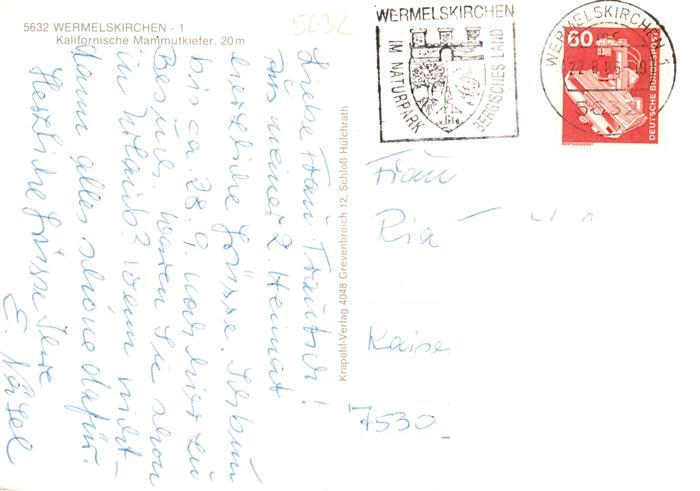 5632 WERMELSKIRCHEN - 1
Kalifornische Mammutkiefer, 20m
5632
Liebe Frau Trautsch!
Aus meiner 2. Heimat
herzliche Grüsse. Ich bin
bis ca 28. 9. noch hier zu
Besuch. Waren Sie schon
in Urlaub? Wenn nicht -
dann alles schöne dafür.
Herzliche Grüsse Ihre
E. Nägel
Krapohl-Verlag 4048 Grevenbroich 12, Schloß Hülchrath
WERMELSKIRCHEN
IM NATURPARK
BERGISCHES LAND
WERMELSKIRCHEN 1
5632
60
DEUTSCHE BUNDESPOST
Frau
Ria
Kaise
7530